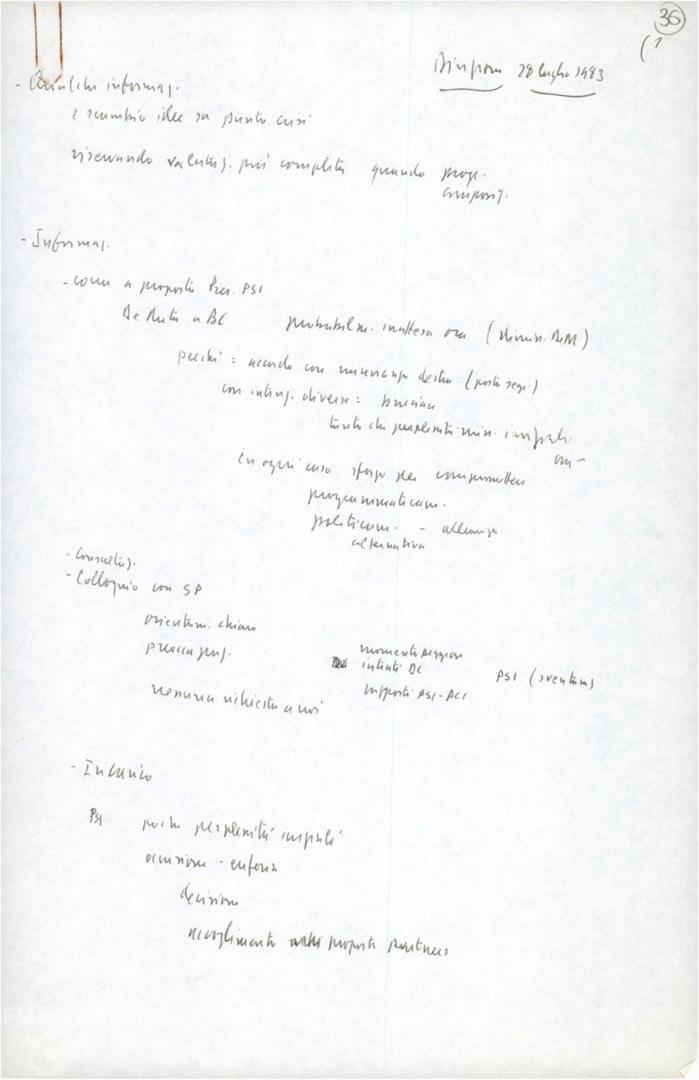 36
(1
Direzione 28 luglio 1983
- Qualche informaz.
e scambio idee su punto crisi
riservando valutaz. più completa quando progr.
composiz.
- Informaz.
- come a proposta Pres. PSI
De Mita a BC probabilm. inattesa ora (dimiss. DeM)
perché = accordo con minoranza destra (posto segr.)
con intenz. diverse = bruciare
tanto che perplessità min.
in ogni caso sforzo per compromettere
programmaticam.
politicam. - alleanza
alternativa
- Consultaz.
- Colloquio con SP
orientam. chiaro
preoccupaz.
momento peggiore
intenti DC PSI (sventare)
rapporti PSI-PCI
nessuna richiesta a noi
- Incarico
PSI poche perplessità
occasione - euforia
decisione
accoglimento proposta partners